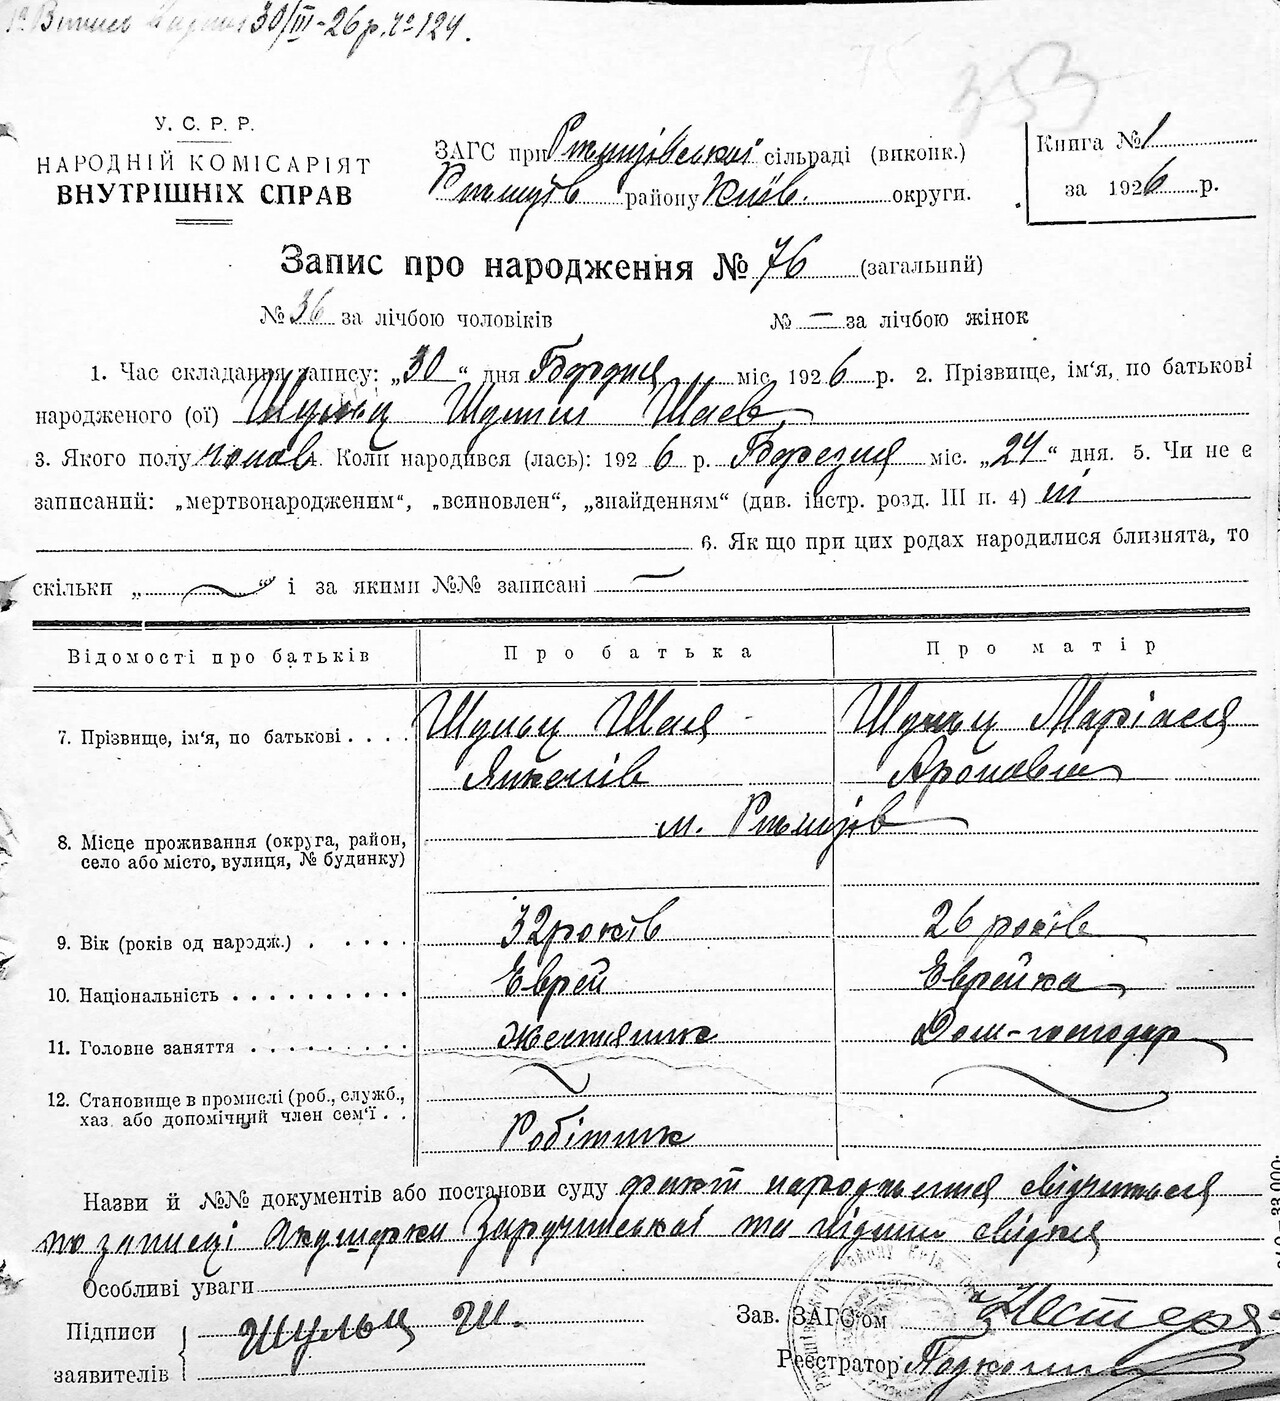 30/III-26 р. № 124.
353
У. С. Р. Р.
НАРОДНІЙ КОМІСАРІЯТ
ВНУТРІШНІХ СПРАВ
ЗАГС при Ржищівській сільраді (виконк.)
Ржищів району Київ. округи.
Книга № 1
за 1926 р.
Запис про народження № 76 (загальний)
№ 36 за лічбою чоловіків № — за лічбою жінок
1. Час складання запису: „30“ дня Березня міс. 1926 р. 2. Прізвище, ім‘я, по батькові
народженого (ої) Шульц Шулим Шаев
3. Якого полу чолов 4. Коли народився (лась): 1926 р. Березня міс. „24“ дня. 5. Чи не є
записаний: „мертвонародженим“, „всиновлен“, „знайденням“ (див. інстр. розд. III п. 4) ні
6. Як що при цих родах народилися близнята, то
скільки „ “ і за якими №№ записані —
Відомості про батьків Про батька Про матір
7. Прізвище, ім‘я, по батькові Шульц Шая Шульц Маріася
Янкелів Аронавна
8. Місце проживання (округа, район,
село або місто, вулиця, № будинку) м. Ржищів
9. Вік (років од народж.) 32 років 26 років
10. Національність Еврей Еврейка
11. Головне заняття Жестяник Дом-господар
12. Становище в промислі (роб., служб.,
хаз. або допомічний член сем‘ї
Робітник
Назви й №№ документів або постанови суду факт народження свідчиться
по записі Акушерки Заручинської та підпис свідка
Особливі уваги
Підписи
заявителів
Шульц Ш.
Зав. ЗАГС‘ом Нестеря
Реєстратор
33.000.